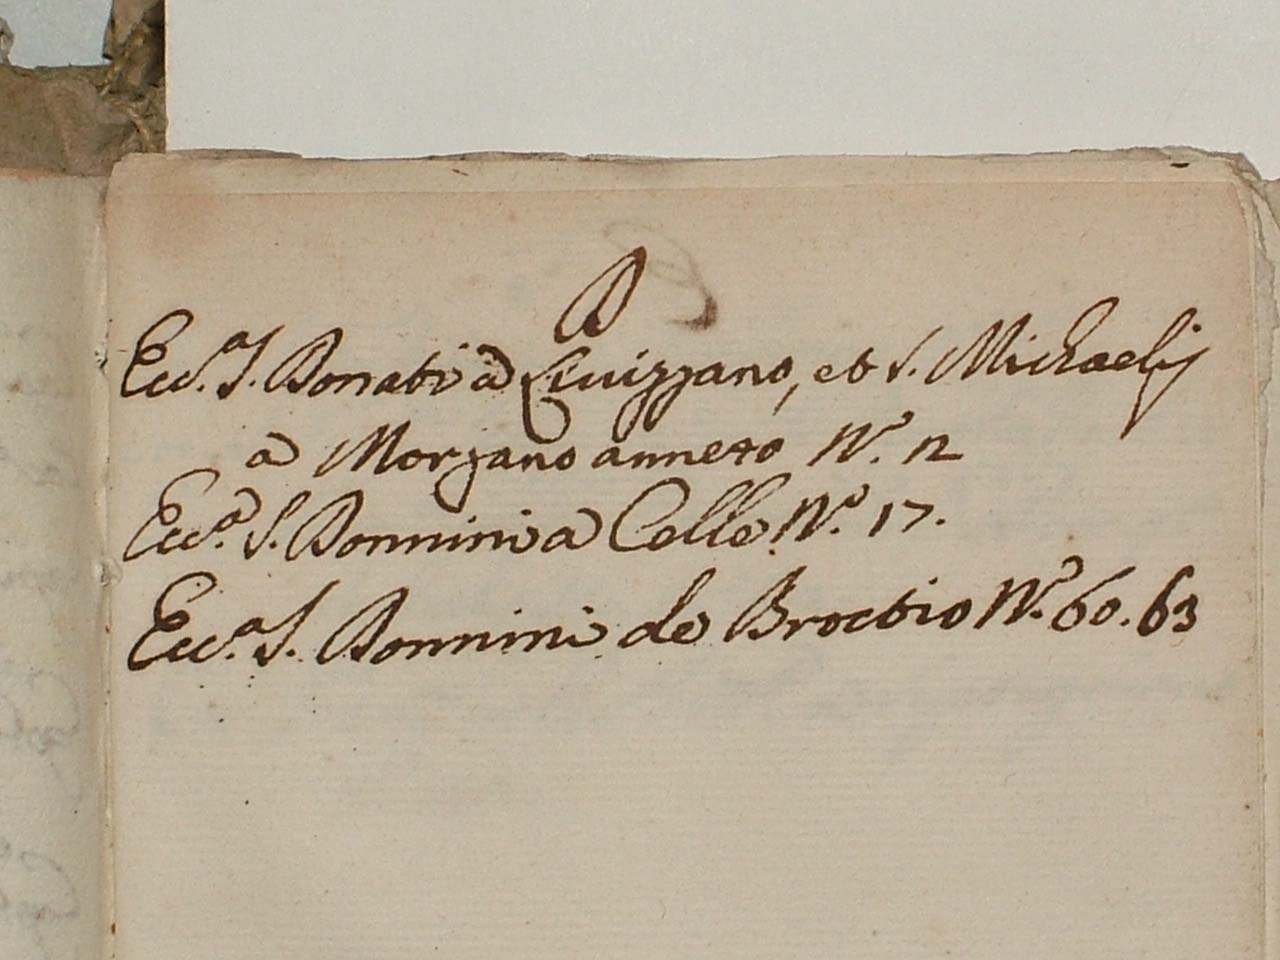 D
Ecc.a S. Donati a Livizzano, et S. Michaelis
a Morzano annexo N.o 12
Ecc.a S. Donnini a Celle N.o 17.
Ecc.a S. Donnini de Broctio N.o 60. 63